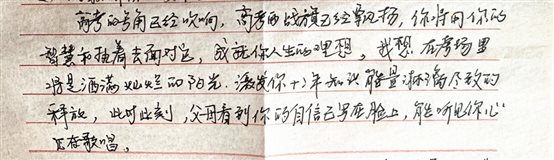 高考的号角已经吹响，高考的战旗已经飘扬，你将用你的
智慧和执着去面对它，成就你人生的理想，我想在考场里
将是洒满灿烂的阳光，激发你十二年知识能量淋漓尽致的
释放，此时此刻，父母看到你的自信已写在脸上，能听见你心
正在歌唱。